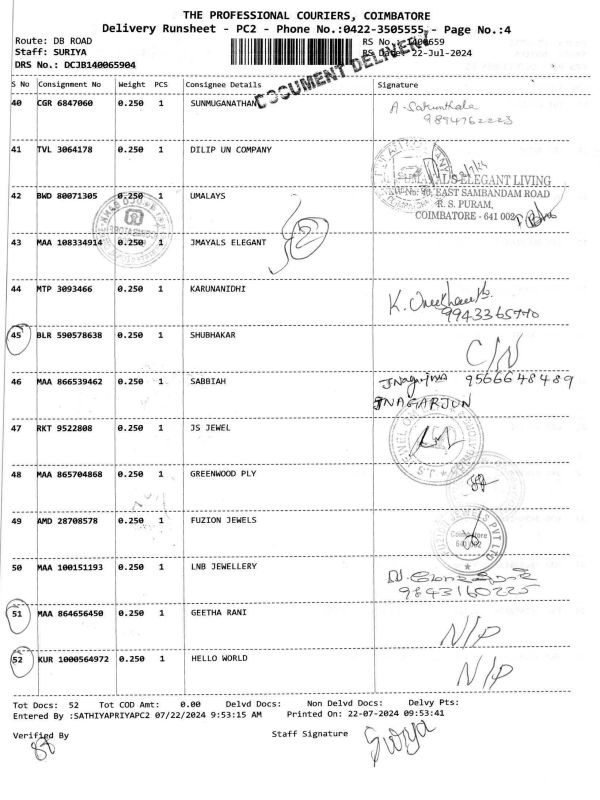 THE PROFESSIONAL COURIERS, COIMBATORE
Delivery Runsheet - PC2 - Phone No.:0422-3505555, - Page No.:4
Route: DB ROAD
Staff: SURIYA
DRS No.: DCJB140065904
RS No. :1400659
RS Date: 22-Jul-2024
DOCUMENT DELIVERY
S No Consignment No Weight PCS Consignee Details Signature
40 CGR 6847060 0.250 1 SUNMUGANATHAN
A. Sakunthala
9894762223
41 TVL 3064178 0.250 1 DILIP UN COMPANY
42 BWD 80071305 0.250 1 UMALAYS
ELEGANT LIVING
No: 40, EAST SAMBANDAM ROAD
R. S. PURAM,
COIMBATORE - 641 002
43 MAA 108334914 0.250 1 JMAYALS ELEGANT
44 MTP 3093466 0.250 1 KARUNANIDHI
9943365770
45 BLR 590578638 0.250 1 SHUBHAKAR
C/N
46 MAA 866539462 0.250 1 SABBIAH
JNagarjuna 9566648489
JNAGARJUN
47 RKT 9522808 0.250 1 JS JEWEL
48 MAA 865704868 0.250 1 GREENWOOD PLY
49 AMD 28708578 0.250 1 FUZION JEWELS
JEWELS PVT LTD
Coimbatore
641 002
50 MAA 100151193 0.250 1 LNB JEWELLERY
9843160225
51 MAA 864656450 0.250 1 GEETHA RANI
N/P
52 KUR 1000564972 0.250 1 HELLO WORLD
N/P
Tot Docs: 52 Tot COD Amt: 0.00 Delvd Docs: Non Delvd Docs: Delvy Pts:
Entered By :SATHIYAPRIYAPC2 07/22/2024 9:53:15 AM Printed On: 22-07-2024 09:53:41
Verified By Staff Signature
Suriya